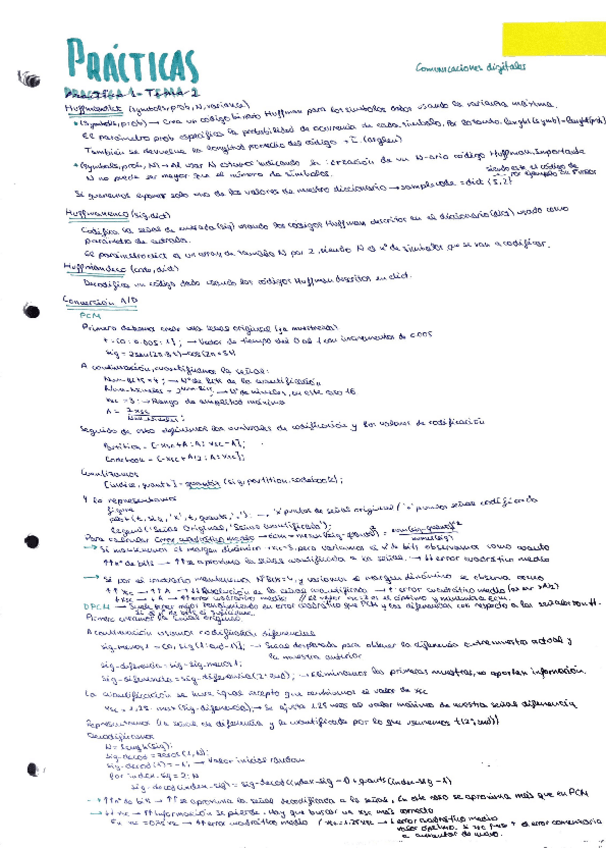 PRÁCTICAS
Comunicaciones digitales
PRÁCTICA 1 - TEMA 2
Huffmandict (symbols, prob, N, variance)
* (symbols, prob) → Crea un código binario Huffman para los símbolos dados usando la varianza mínima.
El parámetro prob especifica la probabilidad de ocurrencia de cada símbolo. Por lo tanto: length(symb) = length(prob)
También se devuelve la longitud promedio del código
* (symbols, prob, N) → Al usar N estamos indicando la creación de un N-ario código Huffman. Importante
N no puede ser mayor que el número de símbolos.
Si queremos exponer solo uno de los valores de nuestro diccionario → samplecode = dict {5,2}
siendo este el código de por ejemplo
Huffmanenco (sig, dict)
Codifica la señal de entrada (sig) usando los códigos Huffman descritos en el diccionario (dict) usado como
parámetro de entrada.
El parámetro dict es un array de tamaño N por 2, siendo N el nº de símbolos que se van a codificar.
Huffmandeco (code, dict)
Decodifica un código dado usando los códigos Huffman descritos en dict.
Conversión A/D
PCM
Primero debemos crear una señal original (ya muestreada)
t = [0 : 0.005 : 1]; → Vector de tiempo del 0 al 1 con incrementos de 0.005
A continuación, cuantificamos la señal:
Num-bits = 4; → Nº de bits de la cuantificación
→ Nº de niveles, en este caso 16
xsc = 3; → Rango de amplitud máximo
Seguido de esto definimos los umbrales de codificación y los valores de codificación
Partition = [-xsc+Δ : Δ : xsc-Δ];
Codebook = [-xsc+Δ/2 : Δ : xsc];
Cuantizamos
[indice, quants] = quantiz (sig, partition, codebook);
Y lo representamos
figure
plot (t, sig, 'x', t, quants, '.') → 'x' puntos de señal original / '.' puntos señal codificada
legend ('Señal Original', 'Señal Cuantificada');
Para valorar error cuadrático medio →
→ Si mantenemos el margen dinámico xsc=3, pero variamos el nº de bits observamos como cuanto
↑↑ nº de bits → ↑↑ se aproxima la señal cuantificada a la señal. → ↓↓ error cuadrático medio
→ Si por el contrario mantenemos Nbits=4, y variamos el margen dinámico se observa como
↑↑ xsc → ↑↑ Δ → ↓↓ Resolución de la señal cuantificada → ↑ error cuadrático medio
DPCM → Suele tener mejor rendimiento en error cuadrático que PCM
Primero creamos la señal original
A continuación usamos codificadores diferenciales
sig-menos1 = [0, sig(1:end-1)]; → Señal desplazada para obtener la diferencia entre muestra actual y
la muestra anterior
sig-diferencia = sig - sig-menos1;
sig-diferencia = sig-diferencia (2:end); → Eliminamos las primeras muestras, no aportan información.
La cuantificación se hace igual excepto que cambiamos el valor de xsc
xsc = 1.25 · max (sig-diferencia); → Se ajusta 1.25 veces al valor máximo de nuestra señal diferencia
Representamos la señal de diferencia y la cuantificada por lo que usaremos t(2:end)
Decodificamos
N = length (sig);
sig-decod = zeros (1, N);
sig-decod (1) = -1; → Valor inicial random
for index-sig = 2 : N
sig-decod (index-sig) = sig-decod (index-sig - 1) + quants (index-sig - 1)
→ ↑↑ nº de bits → ↑↑ se aproxima la señal decodificada a la señal. En este caso se aproxima más que en PCM
→ ↓↓ xsc → ↑↑ Información se pierde. Hay que buscar un xsc más correcto
↑↑ error cuadrático medio
↓ error cuadrático medio
valor óptimo.
el error comenzaría
a aumentar de nuevo.